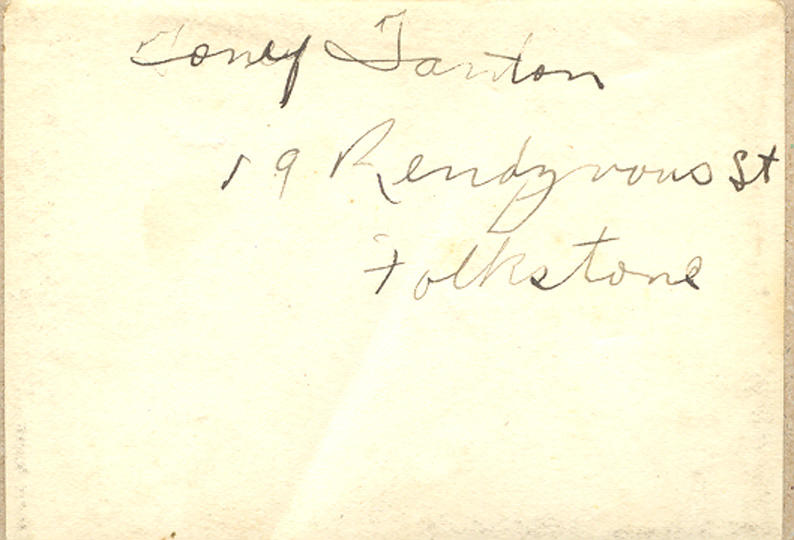 Toney Tanton
19 Rendzvous St
Folkstone